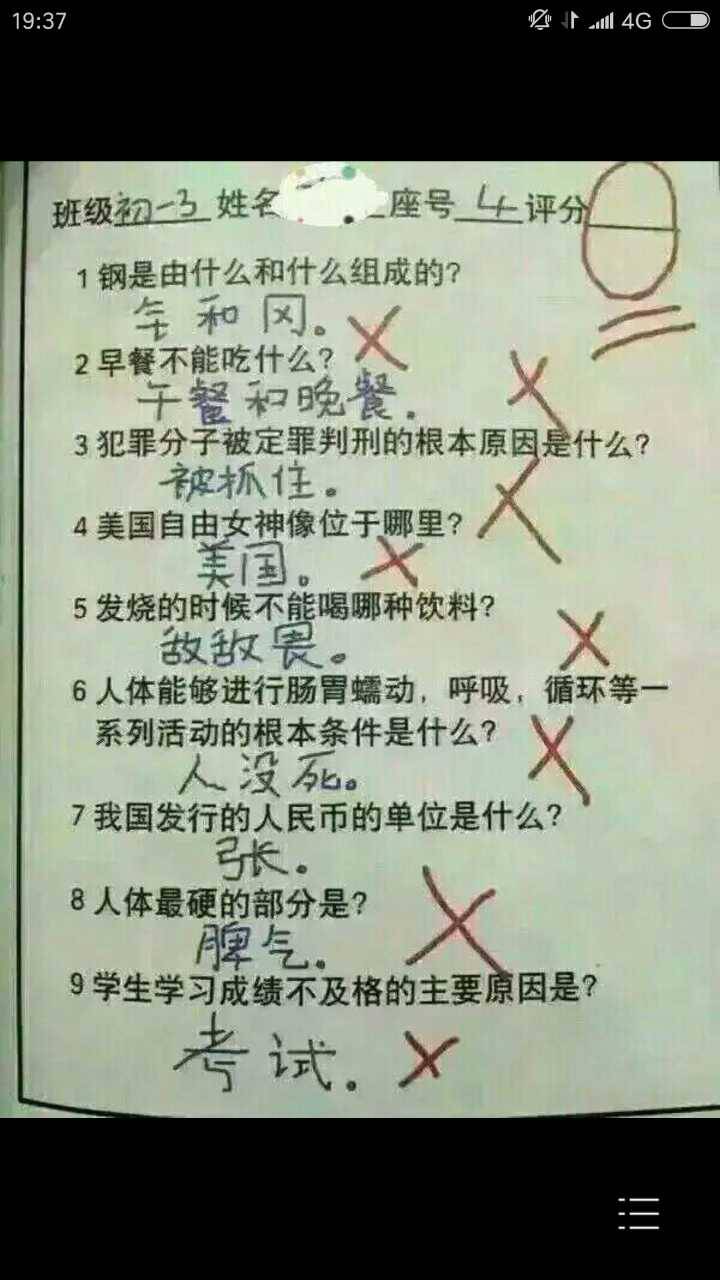 19:37 4G
班级初一3 姓名 座号 4 评分0
1 钢是由什么和什么组成的?
钅和冈。
2 早餐不能吃什么?
午餐和晚餐.
3 犯罪分子被定罪判刑的根本原因是什么?
被抓住。
4 美国自由女神像位于哪里?
美国。
5 发烧的时候不能喝哪种饮料?
敌敌畏。
6 人体能够进行肠胃蠕动，呼吸，循环等一
系列活动的根本条件是什么?
人没死。
7 我国发行的人民币的单位是什么?
张。
8 人体最硬的部分是?
脾气.
9 学生学习成绩不及格的主要原因是?
考试.